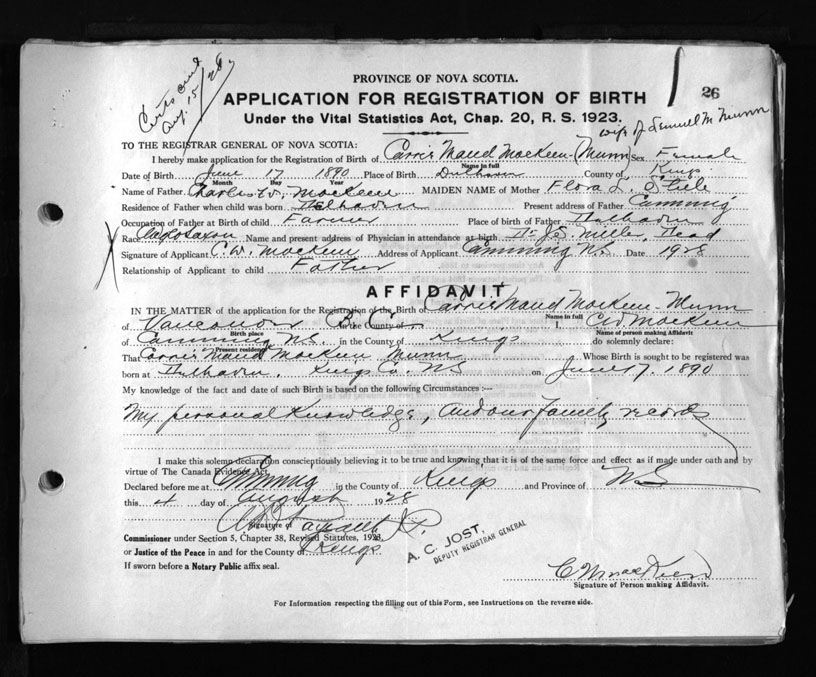 Certs issd
Aug. 15/28.
26
PROVINCE OF NOVA SCOTIA.
APPLICATION FOR REGISTRATION OF BIRTH
Under the Vital Statistics Act, Chap. 20, R. S. 1923.
wife of Lemuel M Munn
TO THE REGISTRAR GENERAL OF NOVA SCOTIA:
I hereby make application for the Registration of Birth of Carrie Maud MacKeen (Munn) Sex Female
Name in full
Date of Birth June 17 1890 Place of Birth Delhaven County of Kings
Month Day Year
Name of Father Charles W. MacKeen MAIDEN NAME of Mother Flora L. Steele
Residence of Father when child was born Delhaven Present address of Father Canning
Occupation of Father at Birth of child Farmer Place of birth of Father Delhaven
Race Name and present address of Physician in attendance at birth Dr Miller, Dead
Signature of Applicant C. W. MacKeen Address of Applicant Canning N.S. Date 1928
Relationship of Applicant to child Father
AFFIDAVIT
IN THE MATTER of the application for the Registration of the Birth of Carrie Maud MacKeen-Munn
Name in full
of Vancouver B.C. in the County of I, C W MacKeen
Birth place Name of person making Affidavit
of Canning N.S. in the County of Kings do solemnly declare:
Present residence
That Carrie Maud MacKeen Munn Whose Birth is sought to be registered was
born at Delhaven, Kings Co. N.S on June 17, 1890
My knowledge of the fact and date of such Birth is based on the following Circumstances :—
My personal Knowledge, And our Family records
I make this solemn declaration conscientiously believing it to be true and knowing that it is of the same force and effect as if made under oath and by
virtue of The Canada Evidence Act.
Declared before me at Canning in the County of Kings and Province of N S
this 4 day of August 1928
Signature of J.P.
Commissioner under Section 5, Chapter 38, Revised Statutes, 1923.
or Justice of the Peace in and for the County of Kings
If sworn before a Notary Public affix seal.
A. C. JOST,
DEPUTY REGISTRAR GENERAL
C W MacKeen
Signature of Person making Affidavit.
For Information respecting the filling out of this Form, see Instructions on the reverse side.